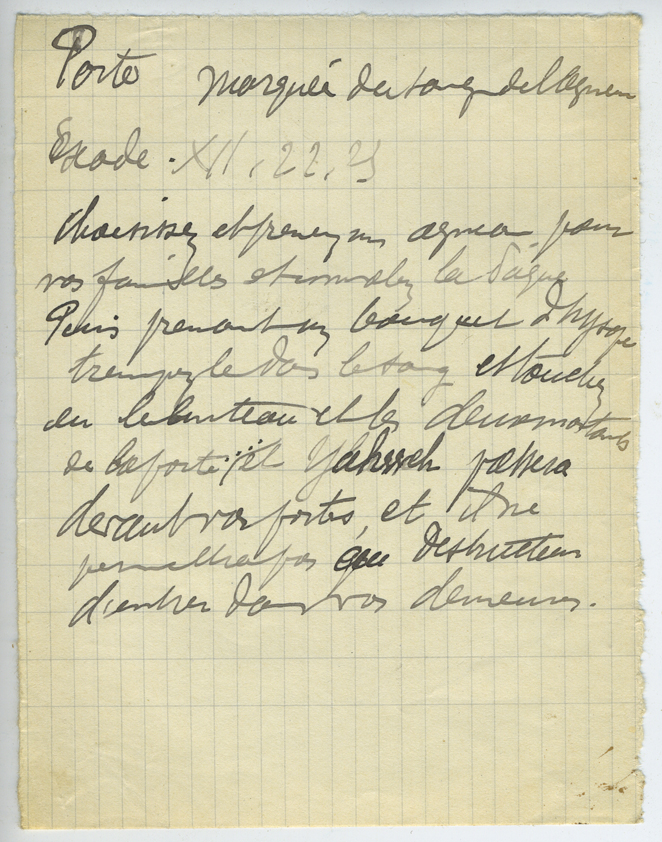 Porte marquée du sang de l'Agneau
Exode . XII, 22, 23
Choisissez et prenez un agneau pour
vos familles et immolez la Pâque
Puis prenant un bouquet d'hysope
trempez le dans le sang et touchez
en le linteau et les deux montants
de la porte ... et Yahweh passera
devant vos portes, et il ne
permettra pas au Destructeur
d'entrer dans vos demeures.